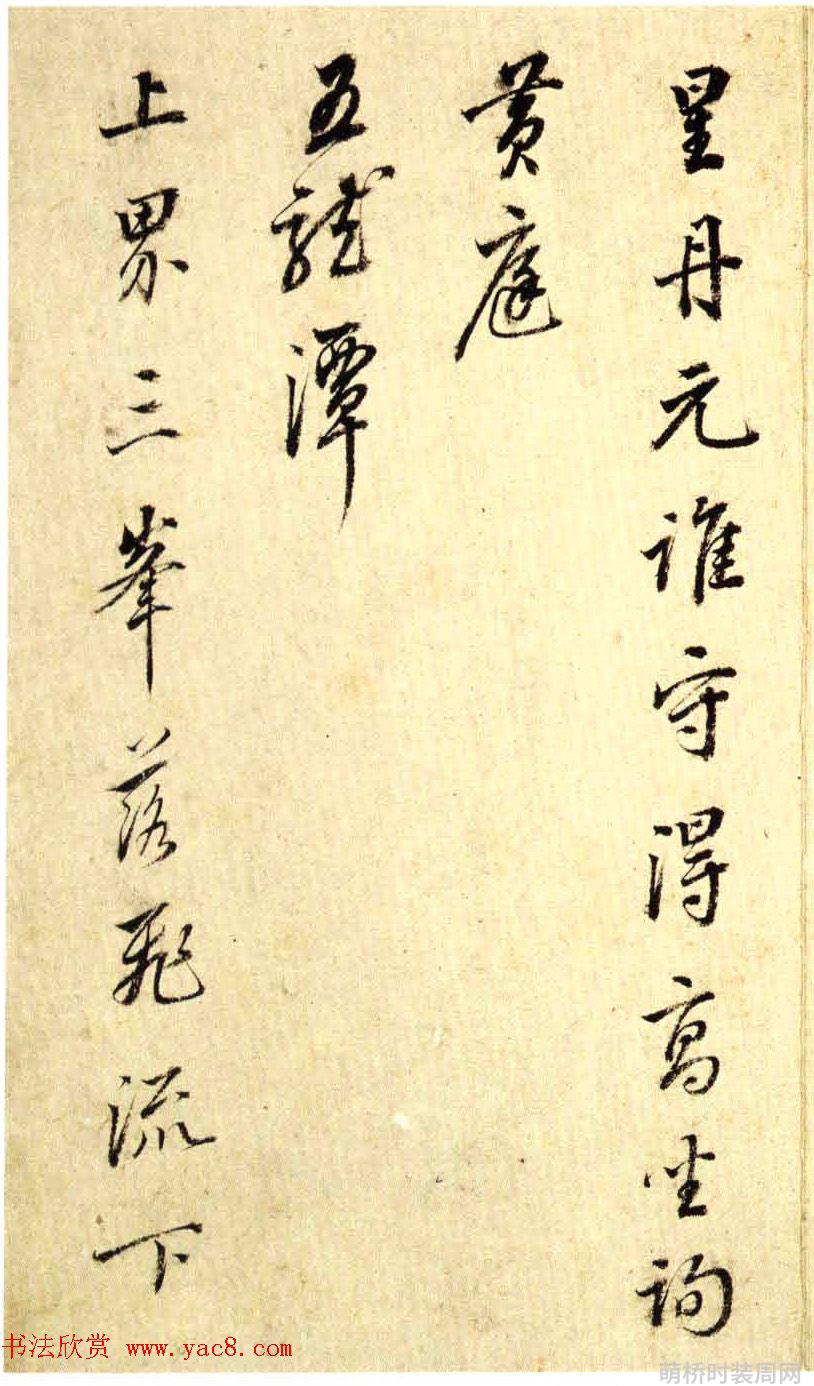 星丹元谁守得高坐询
黄庭
五龍潭
上界三峯落飛流下
书法欣赏 www.yac8.com
萌桥时装周网